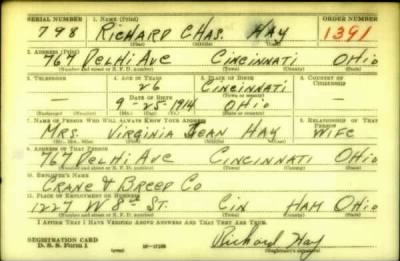 SERIAL NUMBER 1. NAME (Print) ORDER NUMBER
798 RICHARD CHAS. HAY 1391
(First) (Middle) (Last)
2. ADDRESS (Print)
767 DELHI AVE CINCINNATI OHIO
(Number and street or R. F. D. number) (Town) (County) (State)
3. TELEPHONE 4. AGE IN YEARS 5. PLACE OF BIRTH 6. COUNTRY OF CITIZENSHIP
— 26 CINCINNATI —
DATE OF BIRTH (Town or county)
9-25-1914 OHIO
7. NAME OF PERSON WHO WILL ALWAYS KNOW YOUR ADDRESS 8. RELATIONSHIP OF THAT PERSON
MRS. VIRGINIA JEAN HAY WIFE
9. ADDRESS OF THAT PERSON
767 DELHI AVE CINCINNATI OHIO
(Number and street or R. F. D. number) (Town) (County) (State)
10. EMPLOYER'S NAME
CRANE & BREED CO
11. PLACE OF EMPLOYMENT OR BUSINESS
1227 W 8TH ST. CIN HAM OHIO
(Number and street or R. F. D. number) (Town) (County) (State)
I AFFIRM THAT I HAVE VERIFIED ABOVE ANSWERS AND THAT THEY ARE TRUE.
REGISTRATION CARD
D. S. S. FORM 1 (over) Richard Hay
(Registrant's signature)